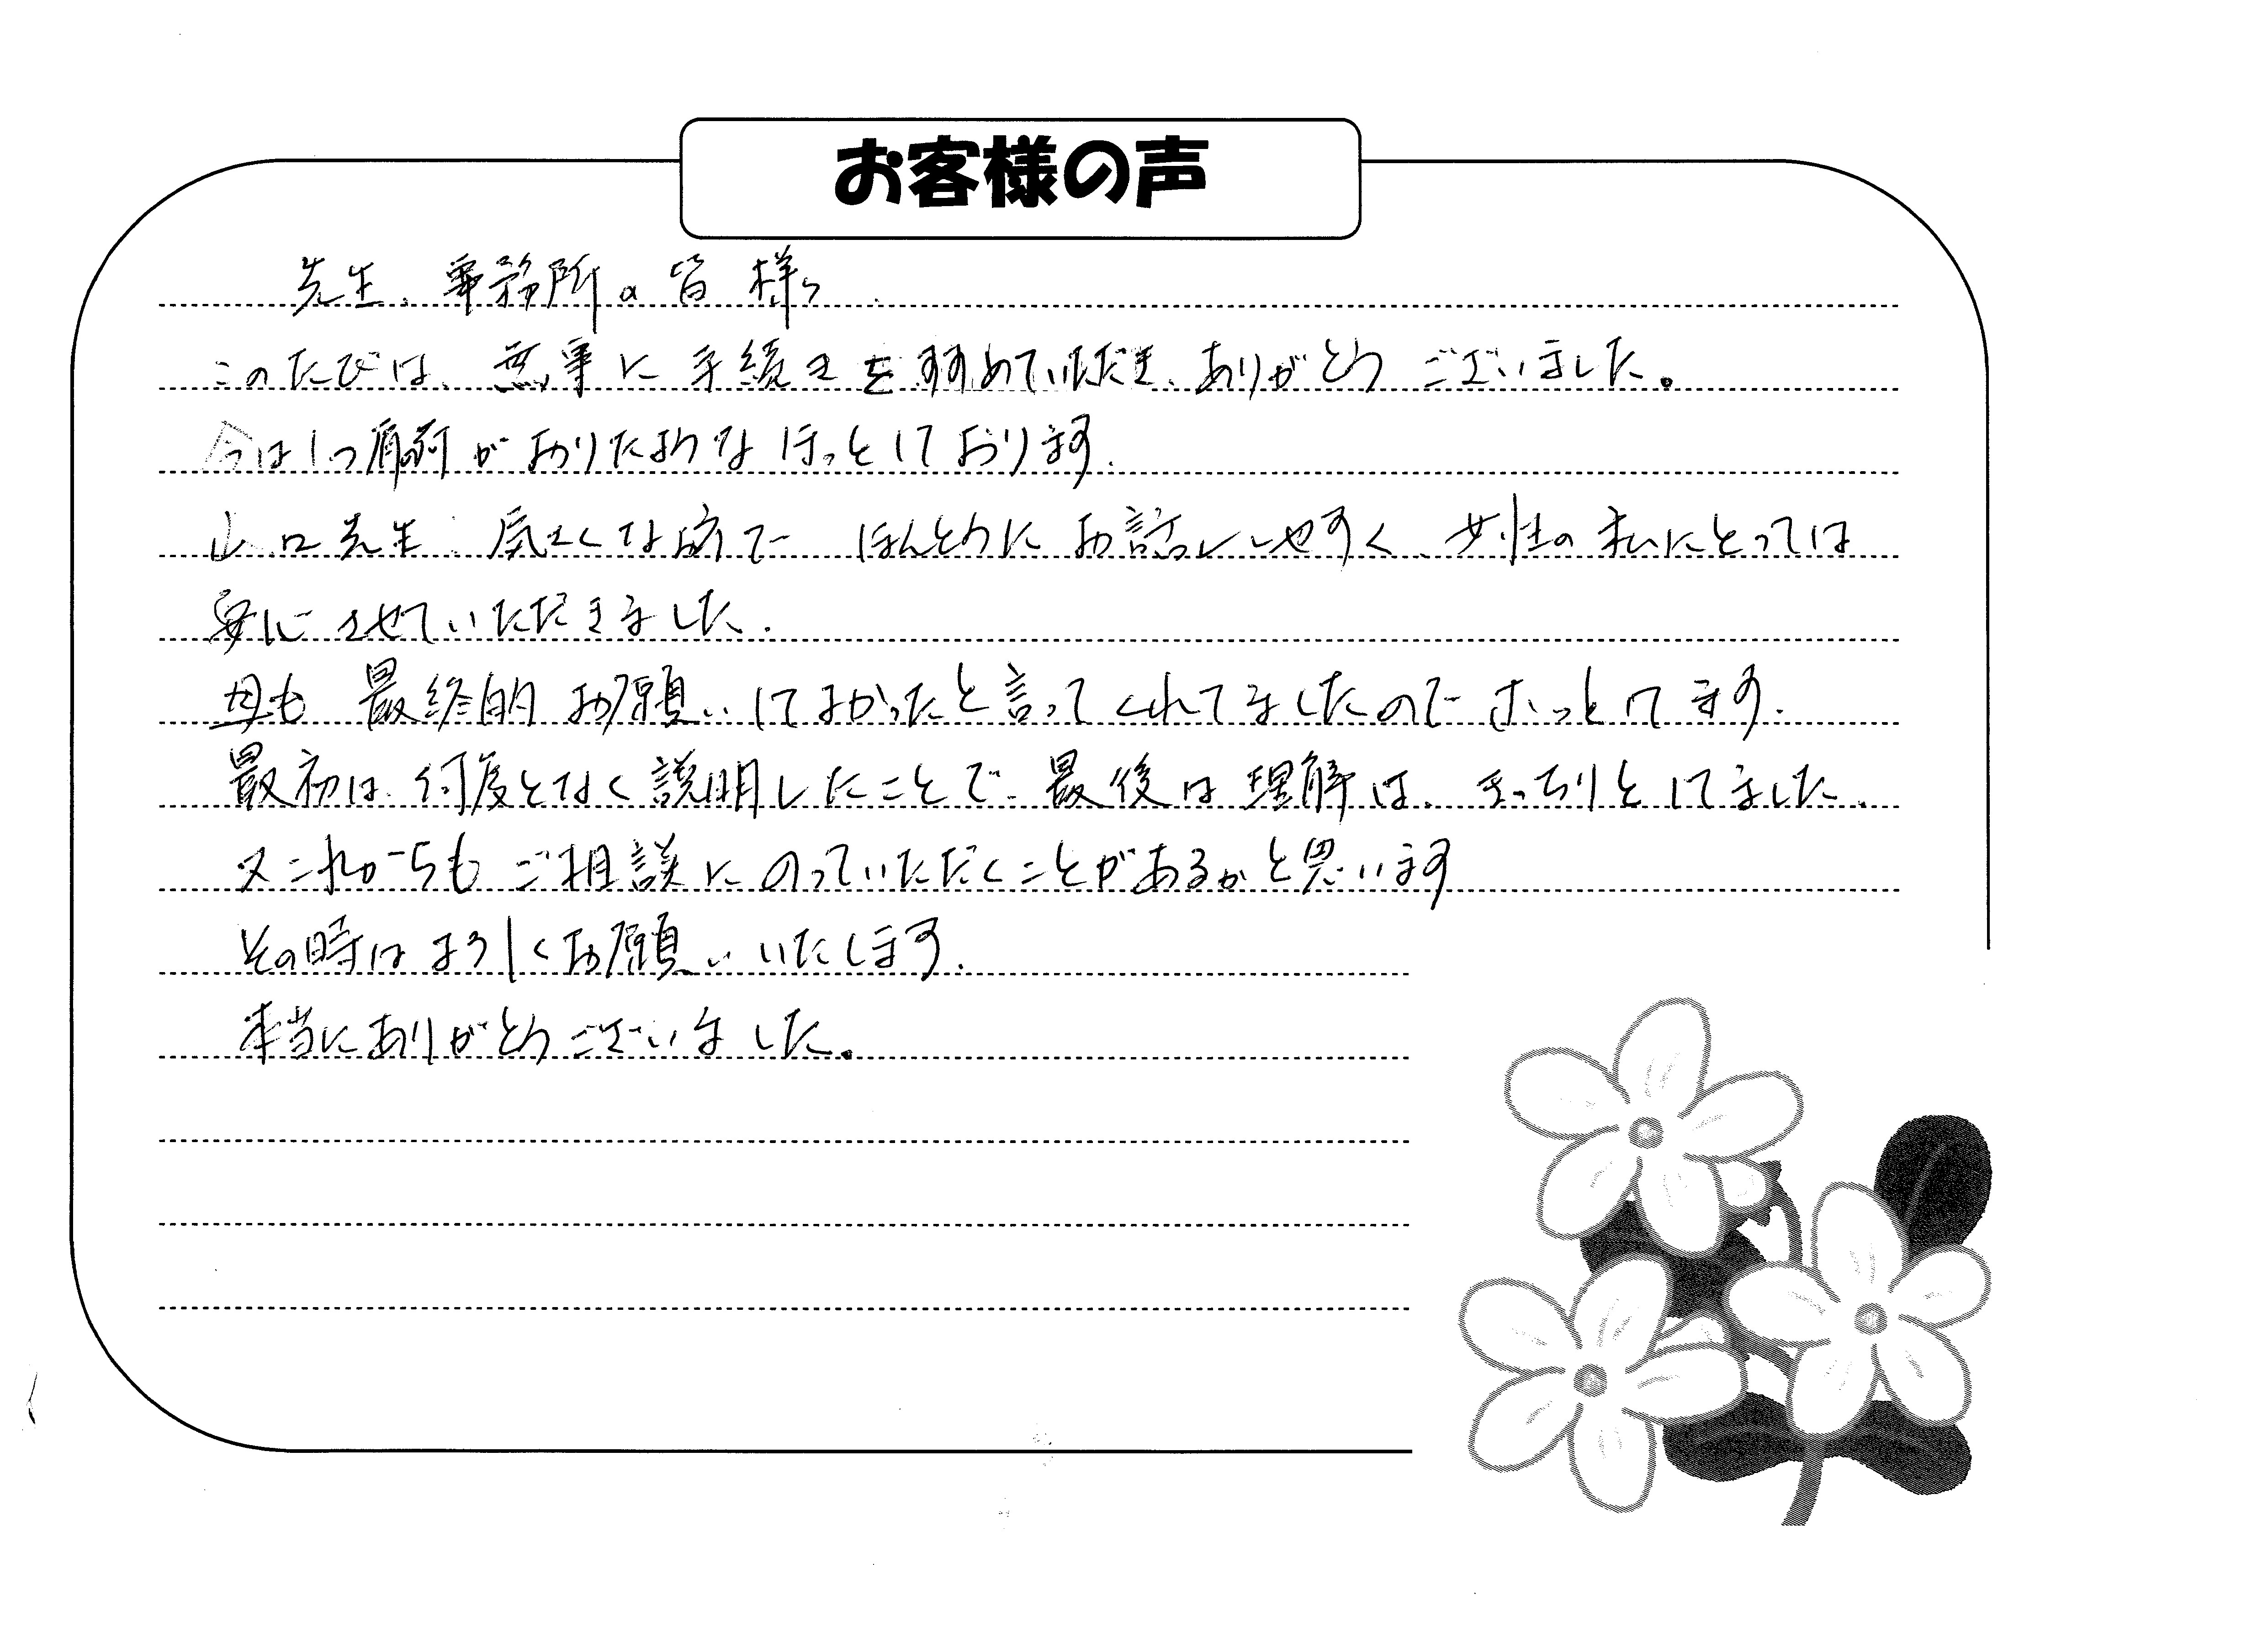 お客様の声
先生、事務所の皆様へ
このたびは、無事に手続きをすすめていただき、ありがとうございました。
今は1つ肩の荷がおりたようなほっとしております。
山口先生 気さくな方で ほんとうにお話ししやすく、女性の私にとっては
楽にさせていただきました。
母も 最終的お願いしてよかったと言ってくれてましたので ほっとしてます。
最初は何度となく説明したことで 最後は理解は、きっちりとしてました。
又これからもご相談にのっていただくことがあるかと思います
その時はよろしくお願いいたします。
本当にありがとうございました。